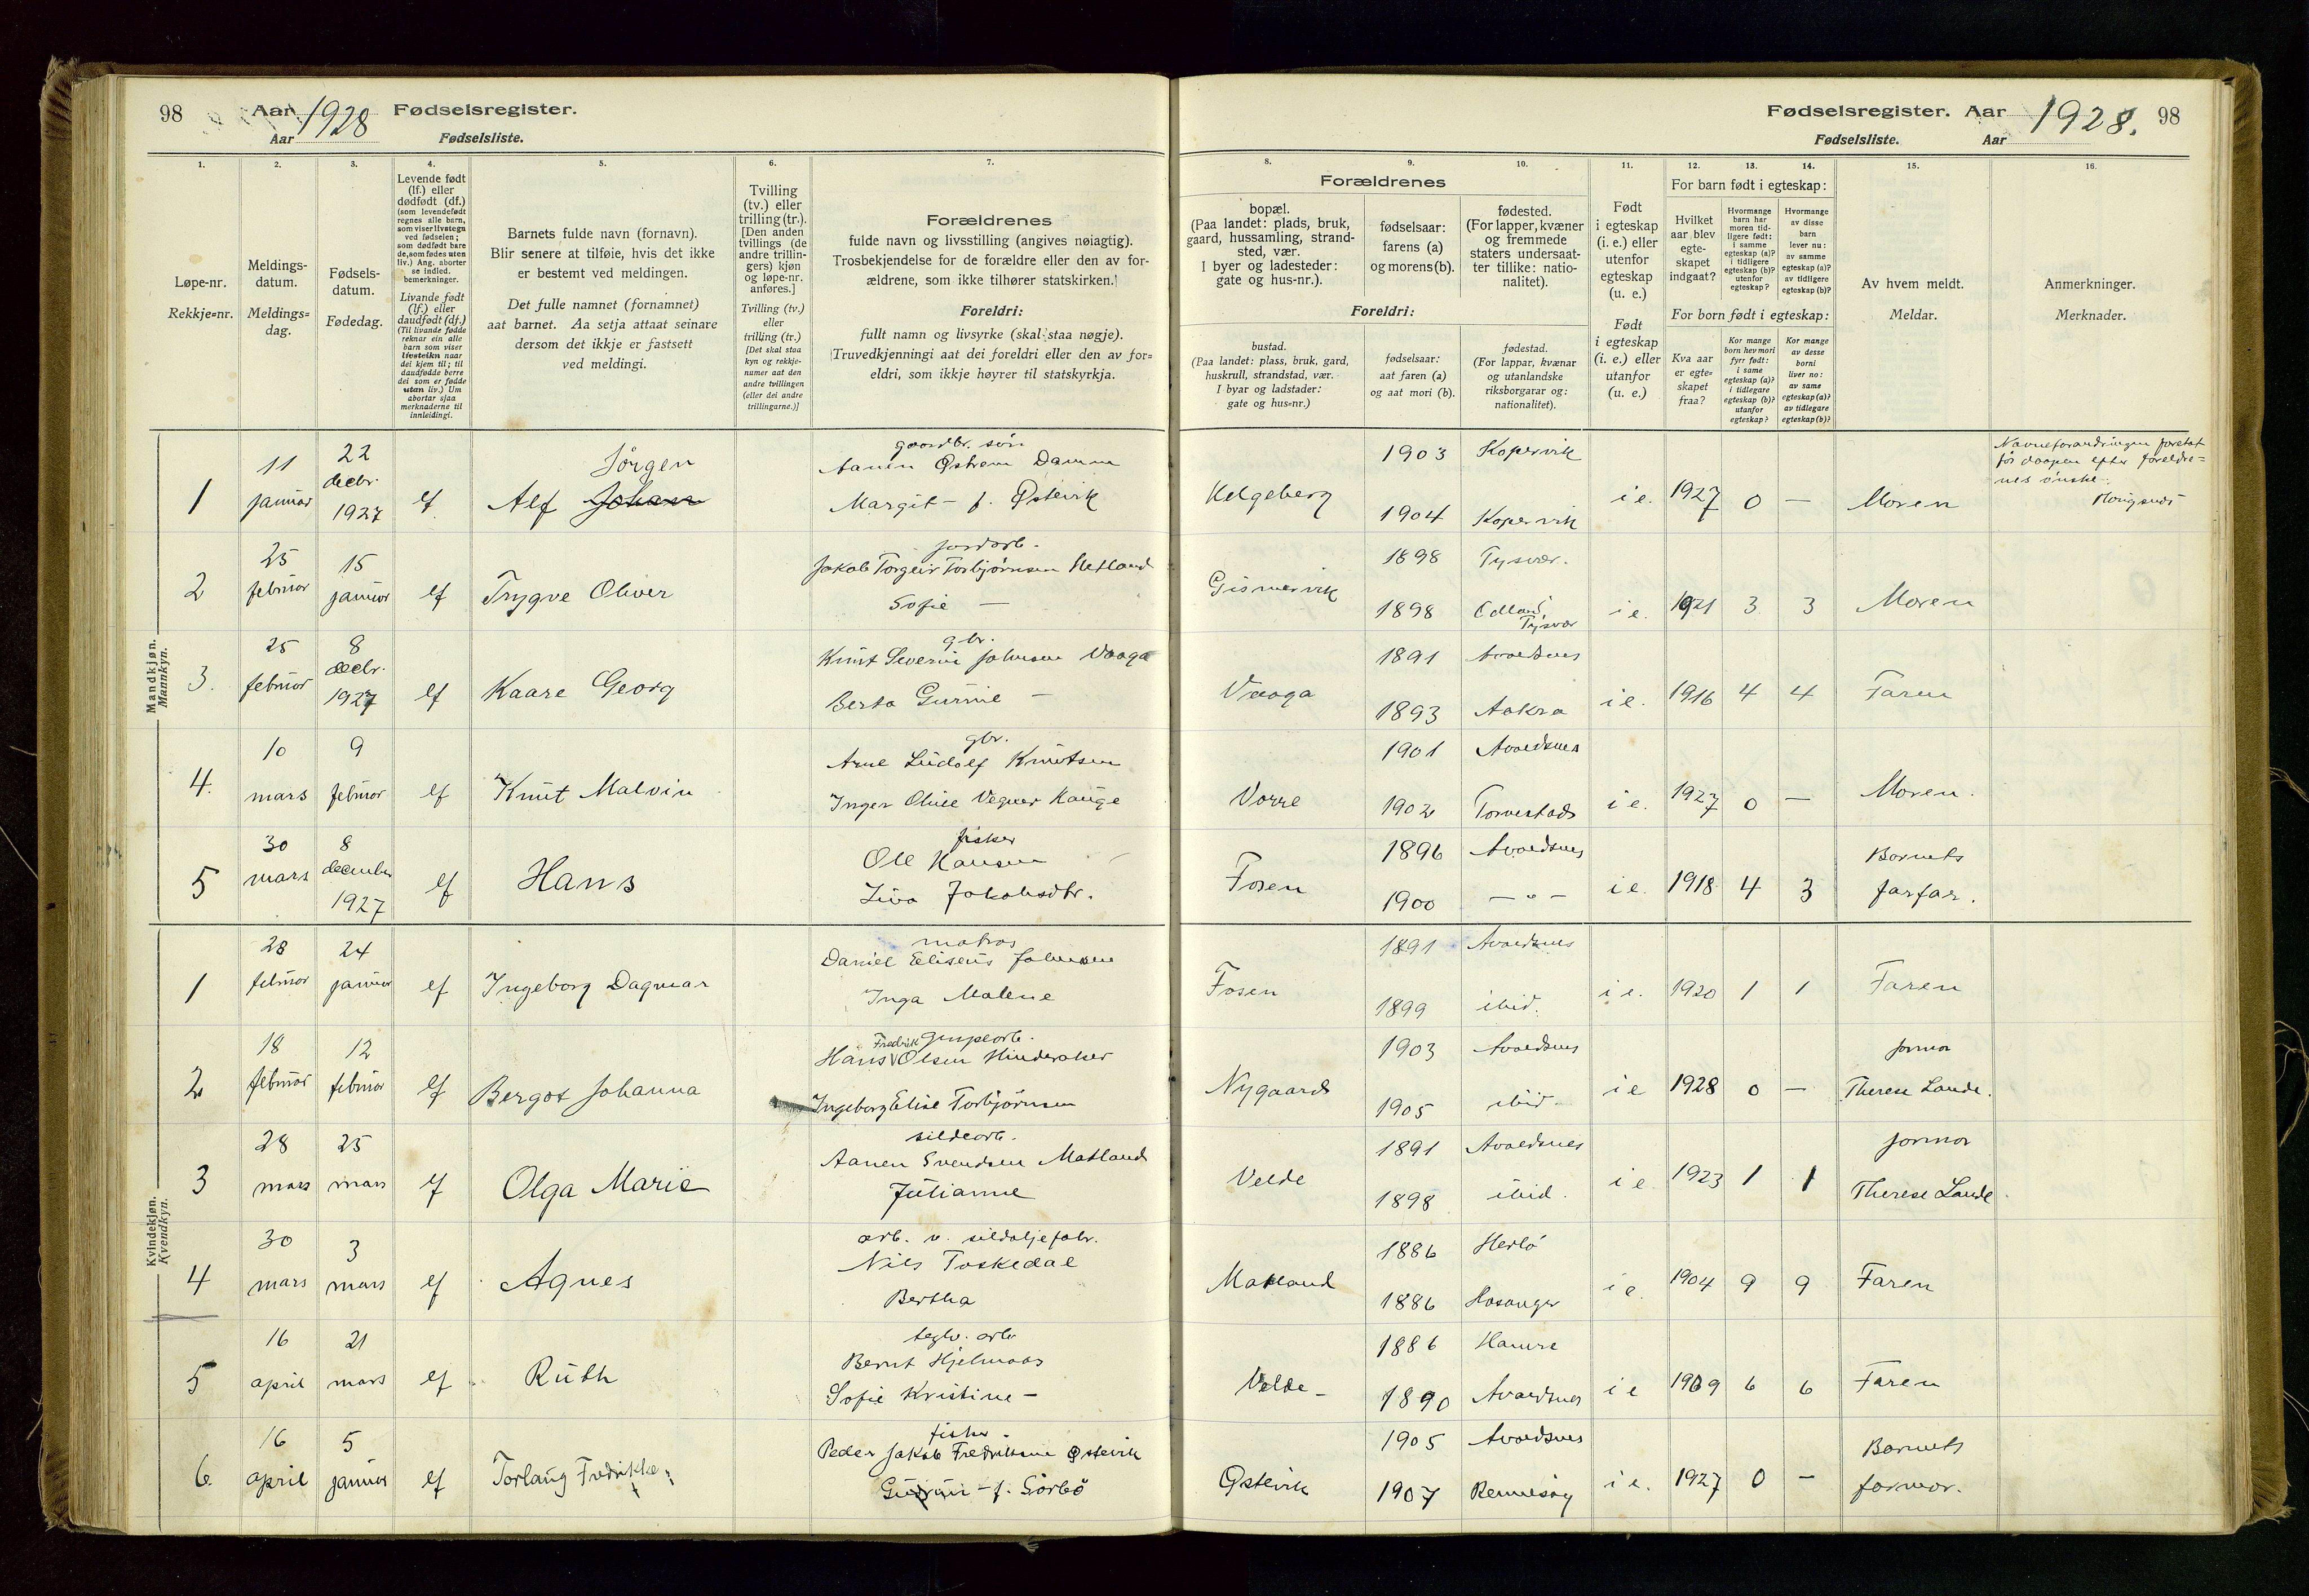 98
Aar 1928 Fødselsregister.
Aar Fødselsliste.
Fødselsregister. Aar 1928. 98
Fødselsliste. Aar
1. 2. 3. 4. 5. 6. 7. 8. 9. 10. 11. 12. 13. 14. 15. 16.
Løpe-nr.
Rekkje=nr.
Meldings-
datum.
Meldings=
dag.
Fødsels-
datum.
Fødedag.
Levende født
(lf.) eller
dødfødt (df.)
(som levendefødt
regnes alle barn,
som viser livstegn
ved fødselen;
som dødfødt bare
de, som fødes uten
liv.) Ang. aborter
se indled.
bemerkninger.
Livande født
(lf.) eller
daudfødt (df.)
(Til livande fødde
reknar ein alle
barn som viser
livsteikn naar
dei kjem til; til
daudfødde berre
dei som er fødde
utan liv.) Um
abortar sjaa
merknaderne til
innleidingi.
Barnets fulde navn (fornavn).
Blir senere at tilføie, hvis det ikke
er bestemt ved meldingen.
Det fulle namnet (fornamnet)
aat barnet. Aa setja attaat seinare
dersom det ikkje er fastsett
ved meldingi.
Tvilling
(tv.) eller
trilling (tr.).
[Den anden
tvillings (de
andre trillin-
gers) kjøn
og løpe-nr.
anføres.]
Tvilling (tv.)
eller
trilling (tr.)
[Det skal staa
kyn og rekkje-
numer aat den
andre tvillingen
(eller dei andre
trillingarne.)]
Forældrenes
fulde navn og livsstilling (angives nøiagtig).
Trosbekjendelse for de forældre eller den av for-
ældrene, som ikke tilhører statskirken.
Foreldri:
fullt namn og livsyrke (skal staa nøgje).
(Truvedkjenningi aat dei foreldri eller den av for=
eldri, som ikkje høyrer til statskyrkja.
Forældrenes
bopæl.
(Paa landet: plads, bruk,
gaard, hussamling, strand-
sted, vær.
I byer og ladesteder:
gate og hus-nr.).
fødselsaar:
farens (a)
og morens (b).
fødested.
(For lapper, kvæner
og fremmede
staters undersaat-
ter tillike: natio-
nalitet).
Foreldri:
bustad.
(Paa landet: plass, bruk, gard,
huskrull, strandstad, vær.
I byar og ladstader:
gate og hus=nr.)
fødselsaar:
aat faren (a)
og aat mori (b).
fødestad.
(For lappar, kvænar
og utanlandske
riksborgarar og:
nationalitet).
Født
i egteskap
(i. e.) eller
utenfor
egteskap
(u. e.)
Født
i egteskap
(i. e.) eller
utanfor
(u. e.)
For barn født i egteskap:
Hvilket
aar blev
egte-
skapet
indgaat?
Hvormange
barn har
moren tid-
ligere født:
i samme
egteskap (a)?
i tidligere
egteskap (b)?
utenfor
egteskap?
Hvormange
av disse
barn
lever nu:
av samme
egteskap (a)?
av tidligere
egteskap (b)?
For born født i egteskap:
Kva aar
er egte=
skapet
fraa?
Kor mange
born hev mori
fyrr født:
i same
egteskap (a)?
i tidlegare
egteskap (b)?
utanfor
egteskap?
Kor mange
av desse
borni
liver no:
av same
egteskap (a)?
av tidlegare
egteskap (b)?
Av hvem meldt.
Meldar.
Anmerkninger.
Merknader.
Mandkjøn.
Mannkyn.
1 11 januar 22 decbr. 1927 lf Alf Johan Jörgen
gaardbr. sön
Aanen Østrem Damm
Margit – f. Østevik
Helgeberg 1903 Kopervik 1904 Kopervik i e. 1927 0 — Moren
Navneforandringen foretat
før daapen efter foreldre=
nes ønske.
2 25 februar 15 januar lf Trygve Oliver
jordarb.
Jakob Torgeir Torbjørnsen Hetland
Sofie —
Gismervik 1898 Tysvær. 1898 Tysvær i e. 1921 3 3 Moren
3. 25 februar 8 decbr. 1927 lf Kaare Georg
gbr.
Knut Severin Johnsen Vaaga
Berta Gurine —
Vaaga 1891 Avaldsnes 1893 Aakra i e. 1916 4 4 Faren
4. 10 mars 9 februar lf Knut Malvin
gbr.
Arne Ludolf Knutsen
Inger Oline Vegner Hauge
Vorre 1901 Avaldsnes 1902 Torvestads i e. 1927 0 — Moren.
5 30 mars 8 december 1927 lf Hans
fisker
Ole Hansen
Liva Jakobsdtr.
Fosen 1896 Avaldsnes 1900 — " — i e. 1918 4 3 Barnets farfar.
Kvindekjøn.
Kvendkyn.
1 28 februar 24 januar lf Ingeborg Dagmar
matros
Daniel Eliseus Johnsen
Inga Malene
Fosen 1891 Avaldsnes 1899 ibid. i e. 1920 1 1 Faren
2 18 februar 12 februar lf Bergot Johanna
Hans Fredrik Olsen Hinderaker
Ingeborg Elise Torbjørnsen
Nygaard 1903 Avaldsnes 1905 ibid. i e 1928 0 — jormor Therese Lande.
3 28 mars 25 mars lf Olga Marie
sildearb.
Aanen Svendsen Matland
Julianne
Velde 1891 Avaldsnes 1898 ibid. i e 1923 1 1 jormor Therese Lande.
4 30 mars 3 mars lf Agnes
arb. v. sildoljefabr.
Nils Toskedal
Bertha
Matland 1886 Herlö 1886 Hosanger i e. 1904 9 9 Faren
5 16 april 21 mars lf Ruth
teglv. arb.
Bernt Hjelmaas
Sofie Kristine –
Velde – 1886 Hamre 1890 Avaldsnes i e 1909 6 6 Faren
6. 16 april 5 januar lf Torlaug Fredrikke
fisker.
Peder Jakob Fredriksen Østevik
Gudrun – f. Sörbö
Østevik 1905 Avaldsnes 1907 Rennesöy i e. 1927 0 — Barnets farmor.